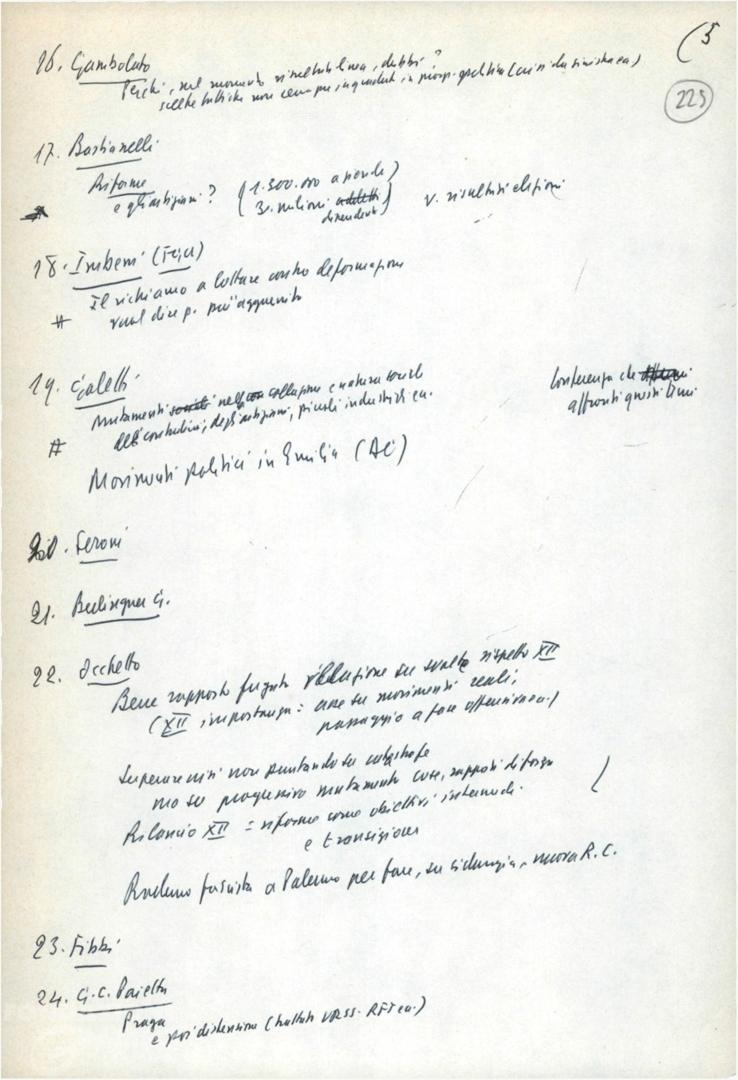 (5
225
16. Gambolato
Perché, sul momento risultati linea, dubbi?
scelte tattiche non sempre inquadrate in prosp. politica (crisi da sinistra ecc)
17. Bastianelli
Riforme
e gli artigiani? (1.300.000 aziende)
3. milioni addetti
dipendenti)
v. risultati elezioni
18. Imbeni (FGCI)
Il richiamo a lottare contro deformazioni
vuol dire p. più "agguerrito
19. Galetti
Mutamenti nella collocazione e natura sociale
dei contadini, degli artigiani, piccoli industriali ecc.
Conferenza che
affronti questi temi
Movimenti politici in Emilia (
20. Seroni
21. Berlinguer G.
22. Occhetto
Bene rapporto relazione su svolta rispetto XII
(XII, importanza: asse su movimenti reali,
passaggio a fase offensiva ecc.)
Superare crisi non puntando su catastrofe
ma su progressivo mutamento cose, rapporti di forza
Rilancio XII = riforme come obiettivi intermedi.
e transizione
Raduno fascista a Palermo per fare, su sicurezza, nuova R.C.
23. Fibbi
24. G.C. Pajetta
Praga
e poi distensione (trattato URSS-RFT ecc.)